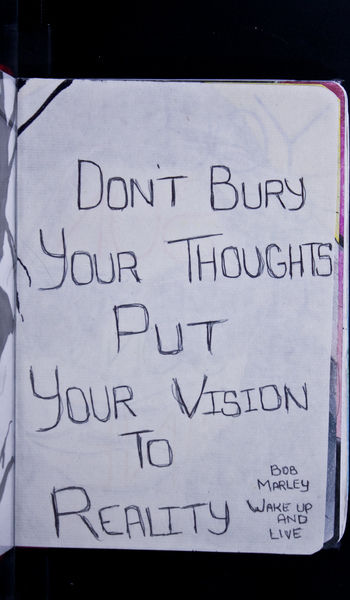 DON'T BURY
YOUR THOUGHTS
PUT
YOUR VISION
TO
REALITY
BOB
MARLEY
WAKE UP
AND
LIVE